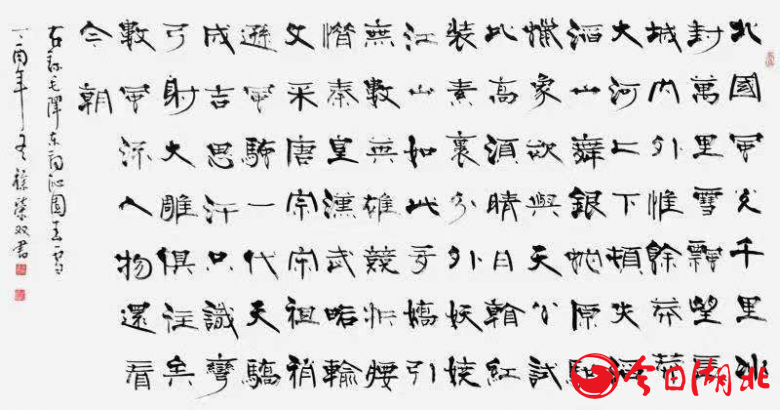 北國風光千里冰
封萬里雪飄望長
城內外惟餘莽莽
大河上下頓失滔
滔山舞銀蛇原馳
蠟象欲與天公試
比高須晴日看紅
裝素裹分外妖嬈
江山如此多嬌引
無數英雄競折腰
惜秦皇漢武略輸
文采唐宗宋祖稍
遜風騷一代天驕
成吉思汗只識彎
弓射大雕俱往矣
數風流人物還看
今朝
右錄毛澤東詞沁園春雪
丁酉年冬徐榮双書
今日湖北